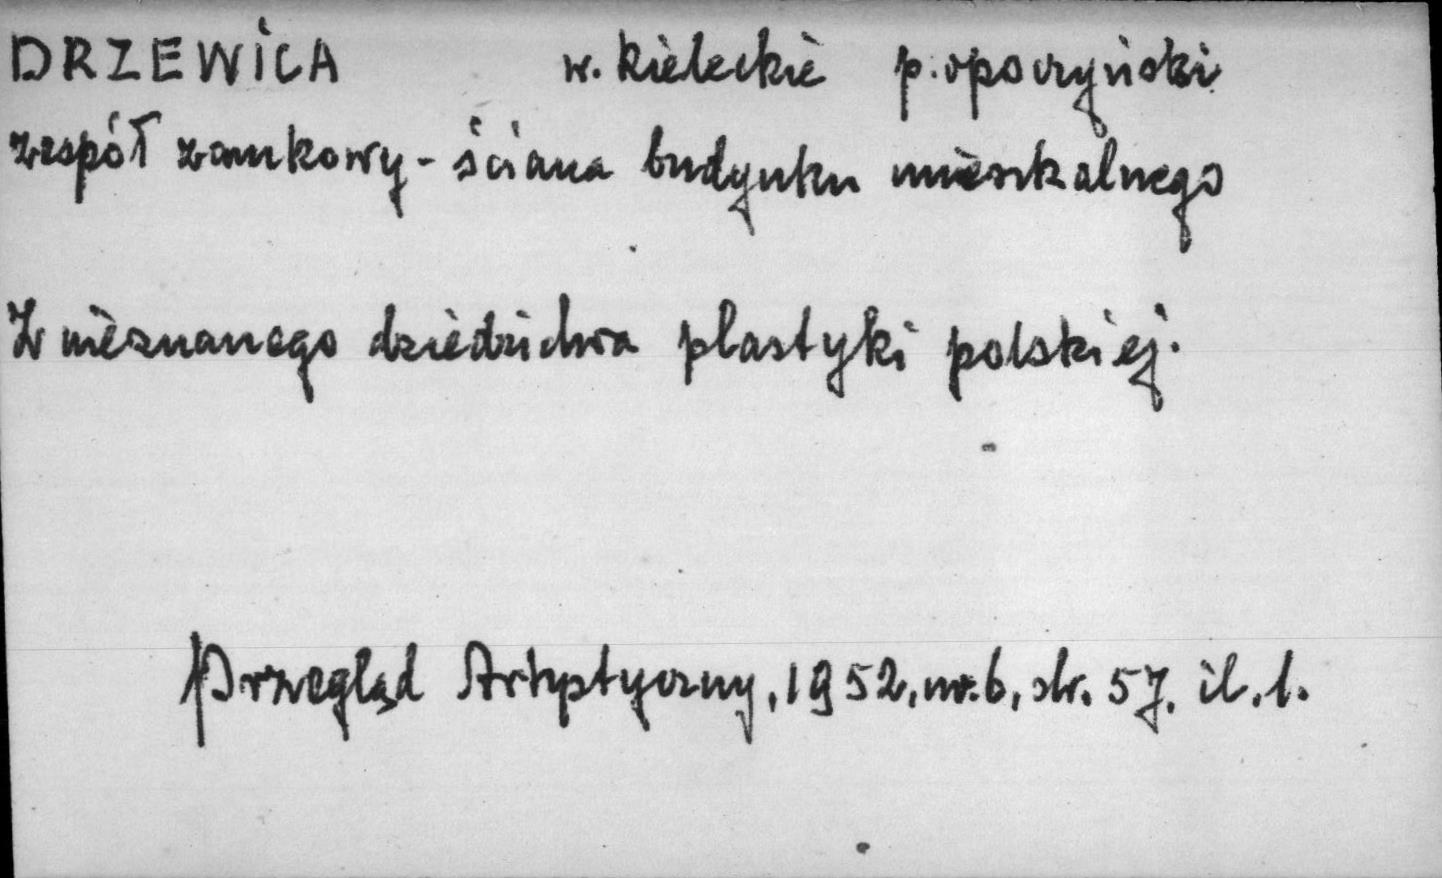 DRZEWICA w. kieleckie p. opoczyński
zespół zamkowy - ściana budynku mieszkalnego
Z nieznanego dziedzictwa plastyki polskiej.
Przegląd Artystyczny, 1952, nr. 6, str. 57, il. 1.